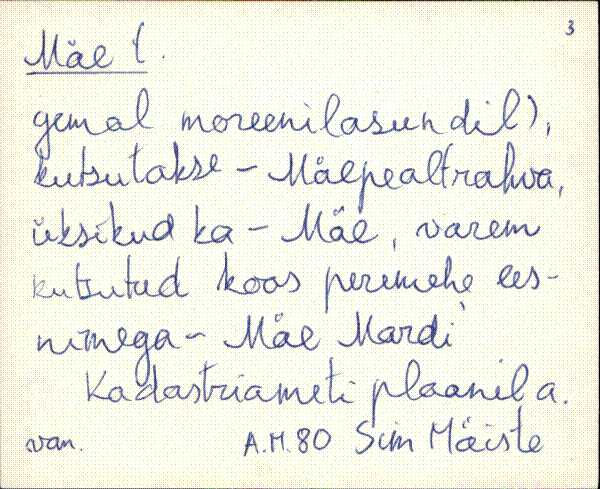 3
Mäe t.
gemal moreenilasundil),
kutsutakse - Mäepealtrahva,
üksikud ka - Mäe, varem
kutsutud koos peremehe ees-
nimega - Mäe Mardi
Kadastriameti plaanil a.
van. A.M. 80 Siim Mäiste